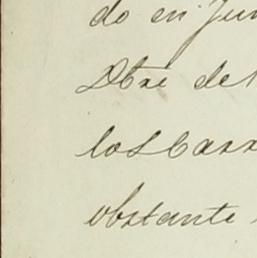 do en Jun
Dbre de 1
los Carr
obstante